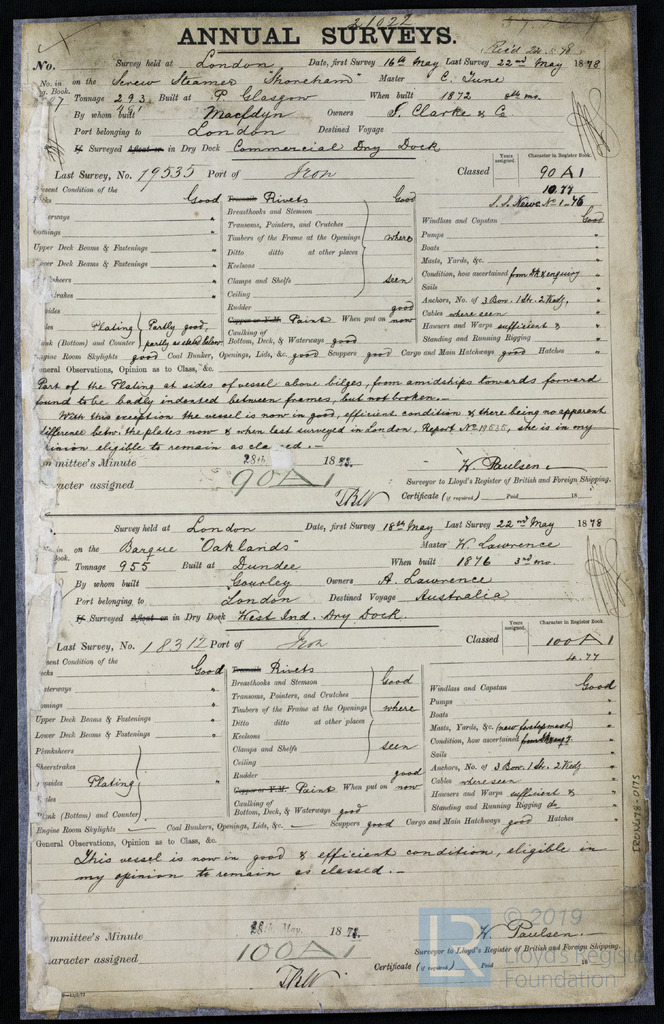 21022
ANNUAL SURVEYS.
Rec'd 22.5.78
No. Survey held at London Date, first Survey 16th May Last Survey 22nd May 1878
No. in on the Screw Steamer "Shoreham" Master C. June
Book. Tonnage 293 Built at P. Glasgow When built 1872 mo.
491
By whom built Macfdyn Owners S. Clarke & Co
Port belonging to London Destined Voyage
If Surveyed Afloat or in Dry Dock Commercial Dry Dock
Years assigned. Character in Register Book.
Last Survey, No. 19535 Port of Iron Classed 90 A 1
10.77
S.S. No 1-76
esent Condition of the
Good Rivets Good
Breasthooks and Stemson
Transoms, Pointers, and Crutches
Timbers of the Frame at the Openings where
Upper Deck Beams & Fastenings " Ditto ditto at other places
ower Deck Beams & Fastenings " Keelsons
Clamps and Shelfs seen
Ceiling
Rudder good
Plating Partly good, Paint When put on now
nk (Bottom) and Counter partly as stated below Caulking of Bottom, Deck, & Waterways good
Windlass and Capstan Good
Pumps "
Boats "
Masts, Yards, &c. "
Condition, how ascertained from & enquiry
Sails "
Anchors, No. of 3 Bow. 1 St. 2 Kedg. "
Cables where seen "
Hawsers and Warps sufficient & "
Standing and Running Rigging "
ngine Room Skylights good Coal Bunker, Openings, Lids, &c. good Scuppers good Cargo and Main Hatchways good Hatches "
eneral Observations, Opinion as to Class, &c.
Part of the Plating at sides of vessel above bilges, from amidships towards forward
found to be badly indented between frames, but not broken.—
With this exception the vessel is now in good, efficient condition & there being no apparent
difference betw. the plates now & when last surveyed in London, Report No 19535, she is in my
inion eligible to remain as cla ed.—
mmittee's Minute 28th 1878.
racter assigned 90 A 1
W. Paulsen.
Surveyor to Lloyd's Register of British and Foreign Shipping.
Certificate (if required) Paid 18
Survey held at London Date, first Survey 18th May Last Survey 22nd May 1878
in on the Barque "Oaklands" Master W. Lawrence
ook. Tonnage 955 Built at Dundee When built 1876 3rd mo.
By whom built Gourley Owners A. Lawrence
Port belonging to London Destined Voyage Australia
If Surveyed Afloat or in Dry Dock West Ind. Dry Dock.
Years assigned. Character in Register Book.
Last Survey, No. 18312 Port of Iron Classed 100 A 1
4.77
ent Condition of the
ecks Good Rivets
Breasthooks and Stemson Good
Transoms, Pointers, and Crutches
Timbers of the Frame at the Openings where
Upper Deck Beams & Fastenings " Ditto ditto at other places
Lower Deck Beams & Fastenings " Keelsons
Planksheers Clamps and Shelfs seen
Sheerstrakes Ceiling
opsides Plating Rudder good
Paint When put on now
Plank (Bottom) and Counter Caulking of Bottom, Deck, & Waterways good
Windlass and Capstan Good
Pumps "
Boats "
Masts, Yards, &c. (new foretopmast) "
Condition, how ascertained
Sails "
Anchors, No. of 3 Bow. 1 St. 2 Kedg. "
Cables where seen "
Hawsers and Warps sufficient & "
Standing and Running Rigging do "
Engine Room Skylights — Coal Bunkers, Openings, Lids, &c. — Scuppers good Cargo and Main Hatchways good Hatches "
General Observations, Opinion as to Class, &c.
This vessel is now in good & efficient condition, eligible in
my opinion to remain as classed.—
mmittee's Minute 28th May. 1878.
aracter assigned 100 A 1
W. Paulsen.—
Surveyor to Lloyd's Register of British and Foreign Shipping.
Certificate (if required) Paid 18
IRON478-0175
LR © 2019
Lloyd's Register
Foundation